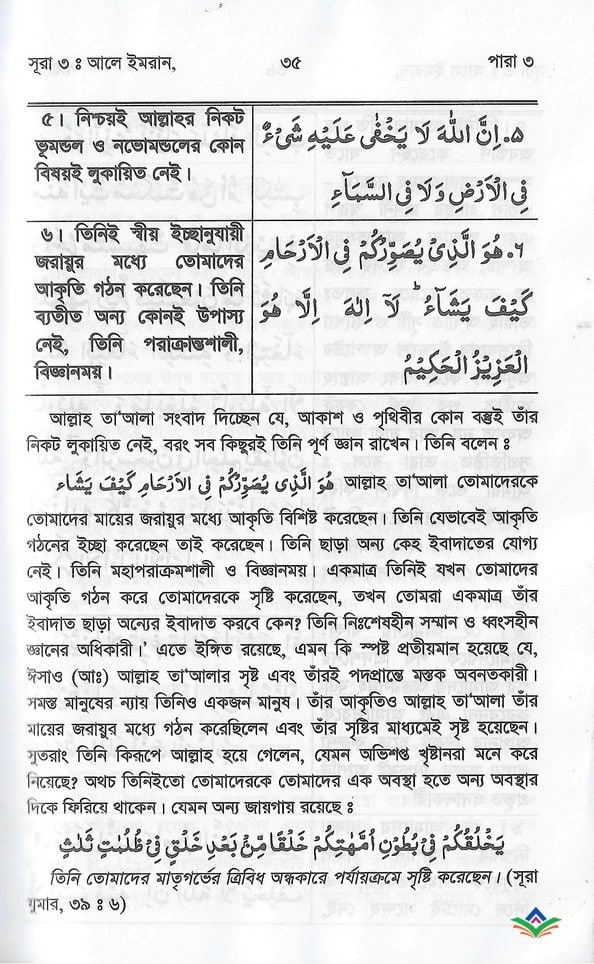 সূরা ৩ ঃ আলে ইমরান,
৩৫
পারা ৩
৫। নিশ্চয়ই আল্লাহর নিকট
ভূমন্ডল ও নভোমন্ডলের কোন
বিষয়ই লুকায়িত নেই।
٥. اِنَّ اللّٰهَ لَا يَخْفٰى عَلَيْهِ شَىْءٌ
فِى الْاَرْضِ وَلَا فِى السَّمَآءِ
৬। তিনিই স্বীয় ইচ্ছানুযায়ী
জরায়ুর মধ্যে তোমাদের
আকৃতি গঠন করেছেন। তিনি
ব্যতীত অন্য কোনই উপাস্য
নেই, তিনি পরাক্রান্তশালী,
বিজ্ঞানময়।
٦. هُوَ الَّذِىْ يُصَوِّرُكُمْ فِى الْاَرْحَامِ
كَيْفَ يَشَآءُ ؕ لَاۤ اِلٰهَ اِلَّا هُوَ
الْعَزِيْزُ الْحَكِيْمُ
আল্লাহ তা‘আলা সংবাদ দিচ্ছেন যে, আকাশ ও পৃথিবীর কোন বস্তুই তাঁর
নিকট লুকায়িত নেই, বরং সব কিছুরই তিনি পূর্ণ জ্ঞান রাখেন। তিনি বলেন ঃ
هُوَ الَّذِىْ يُصَوِّرُكُمْ فِى الْاَرْحَامِ كَيْفَ يَشَاء আল্লাহ তা‘আলা তোমাদেরকে
তোমাদের মায়ের জরায়ুর মধ্যে আকৃতি বিশিষ্ট করেছেন। তিনি যেভাবেই আকৃতি
গঠনের ইচ্ছা করেছেন তাই করেছেন। তিনি ছাড়া অন্য কেহ ইবাদাতের যোগ্য
নেই। তিনি মহাপরাক্রমশালী ও বিজ্ঞানময়। একমাত্র তিনিই যখন তোমাদের
আকৃতি গঠন করে তোমাদেরকে সৃষ্টি করেছেন, তখন তোমরা একমাত্র তাঁর
ইবাদাত ছাড়া অন্যের ইবাদাত করবে কেন? তিনি নিঃশেষহীন সম্মান ও ধ্বংসহীন
জ্ঞানের অধিকারী।’ এতে ইঙ্গিত রয়েছে, এমন কি স্পষ্ট প্রতীয়মান হয়েছে যে,
ঈসাও (আঃ) আল্লাহ তা‘আলার সৃষ্ট এবং তাঁরই পদপ্রান্তে মস্তক অবনতকারী।
সমস্ত মানুষের ন্যায় তিনিও একজন মানুষ। তাঁর আকৃতিও আল্লাহ তা‘আলা তাঁর
মায়ের জরায়ুর মধ্যে গঠন করেছিলেন এবং তাঁর সৃষ্টির মাধ্যমেই সৃষ্ট হয়েছেন।
সুতরাং তিনি কিরূপে আল্লাহ হয়ে গেলেন, যেমন অভিশপ্ত খৃষ্টানরা মনে করে
নিয়েছে? অথচ তিনিইতো তোমাদেরকে তোমাদের এক অবস্থা হতে অন্য অবস্থার
দিকে ফিরিয়ে থাকেন। যেমন অন্য জায়গায় রয়েছে ঃ
يَخْلُقُكُمْ فِىْ بُطُوْنِ اُمَّهٰتِكُمْ خَلْقًا مِّنْۢ بَعْدِ خَلْقٍ فِىْ ظُلُمٰتٍ ثَلٰثٍ
তিনি তোমাদের মাতৃগর্ভের ত্রিবিধ অন্ধকারে পর্যায়ক্রমে সৃষ্টি করেছেন। (সূরা
যুমার, ৩৯ ঃ ৬)